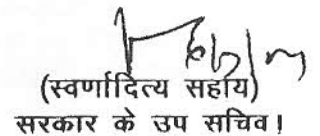 (स्वर्णादित्य सहाय)
सरकार के उप सचिव।